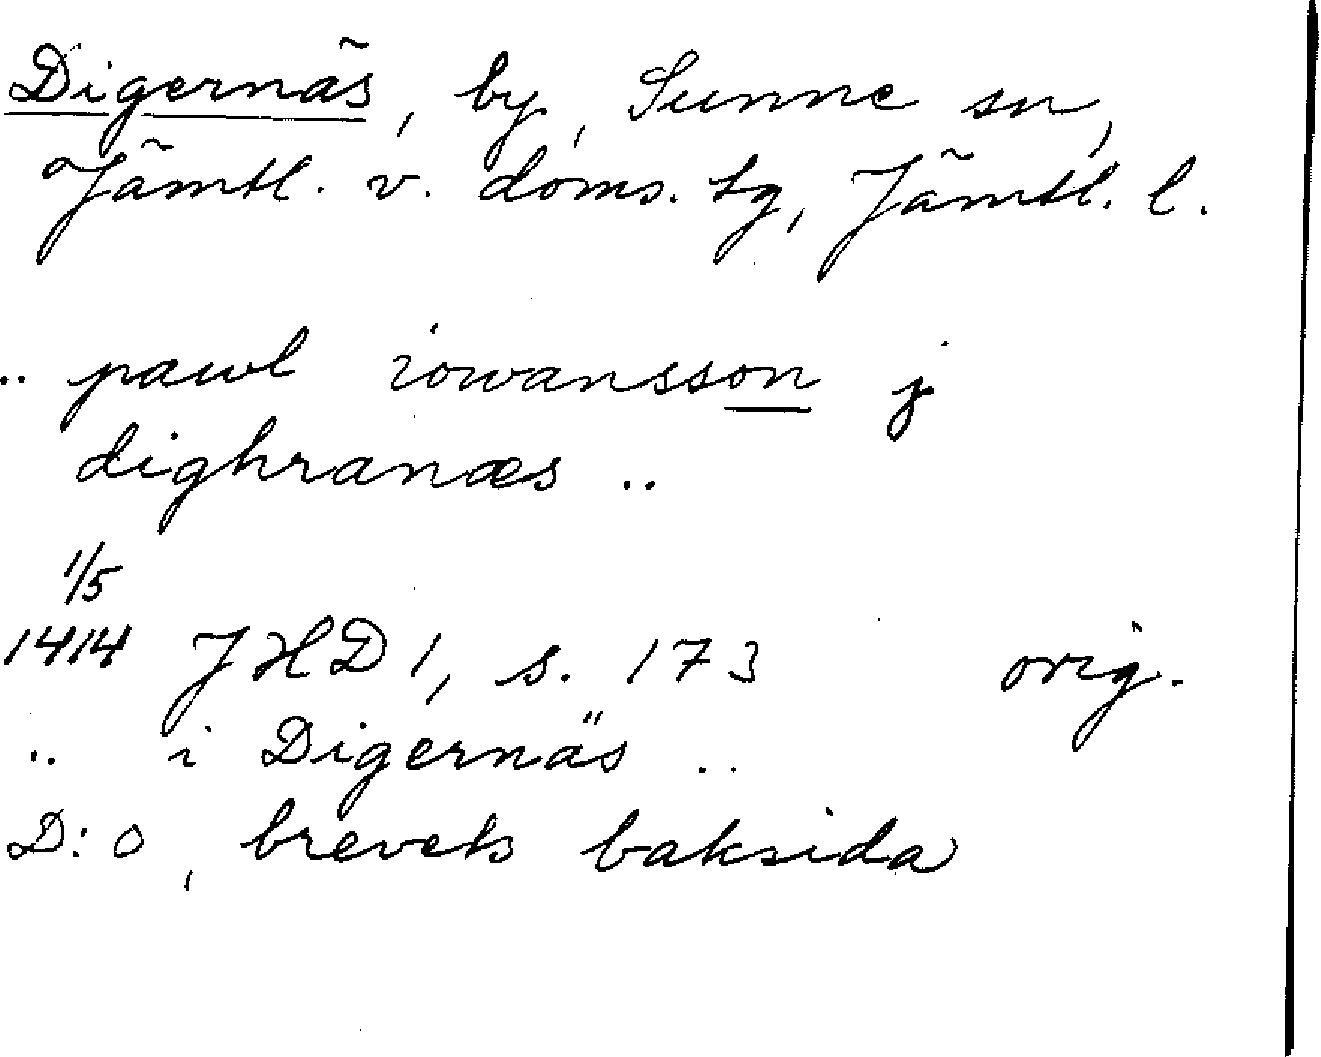 Digernäs, by, Sunne sn,
Jämtl. v. doms. tg, Jämtl. l.
.. pawl iowansson j
dighranæs ..
1/5
1414 JHD 1, s. 173 orig.
.. i Digernäs ..
D:o, brevets baksida